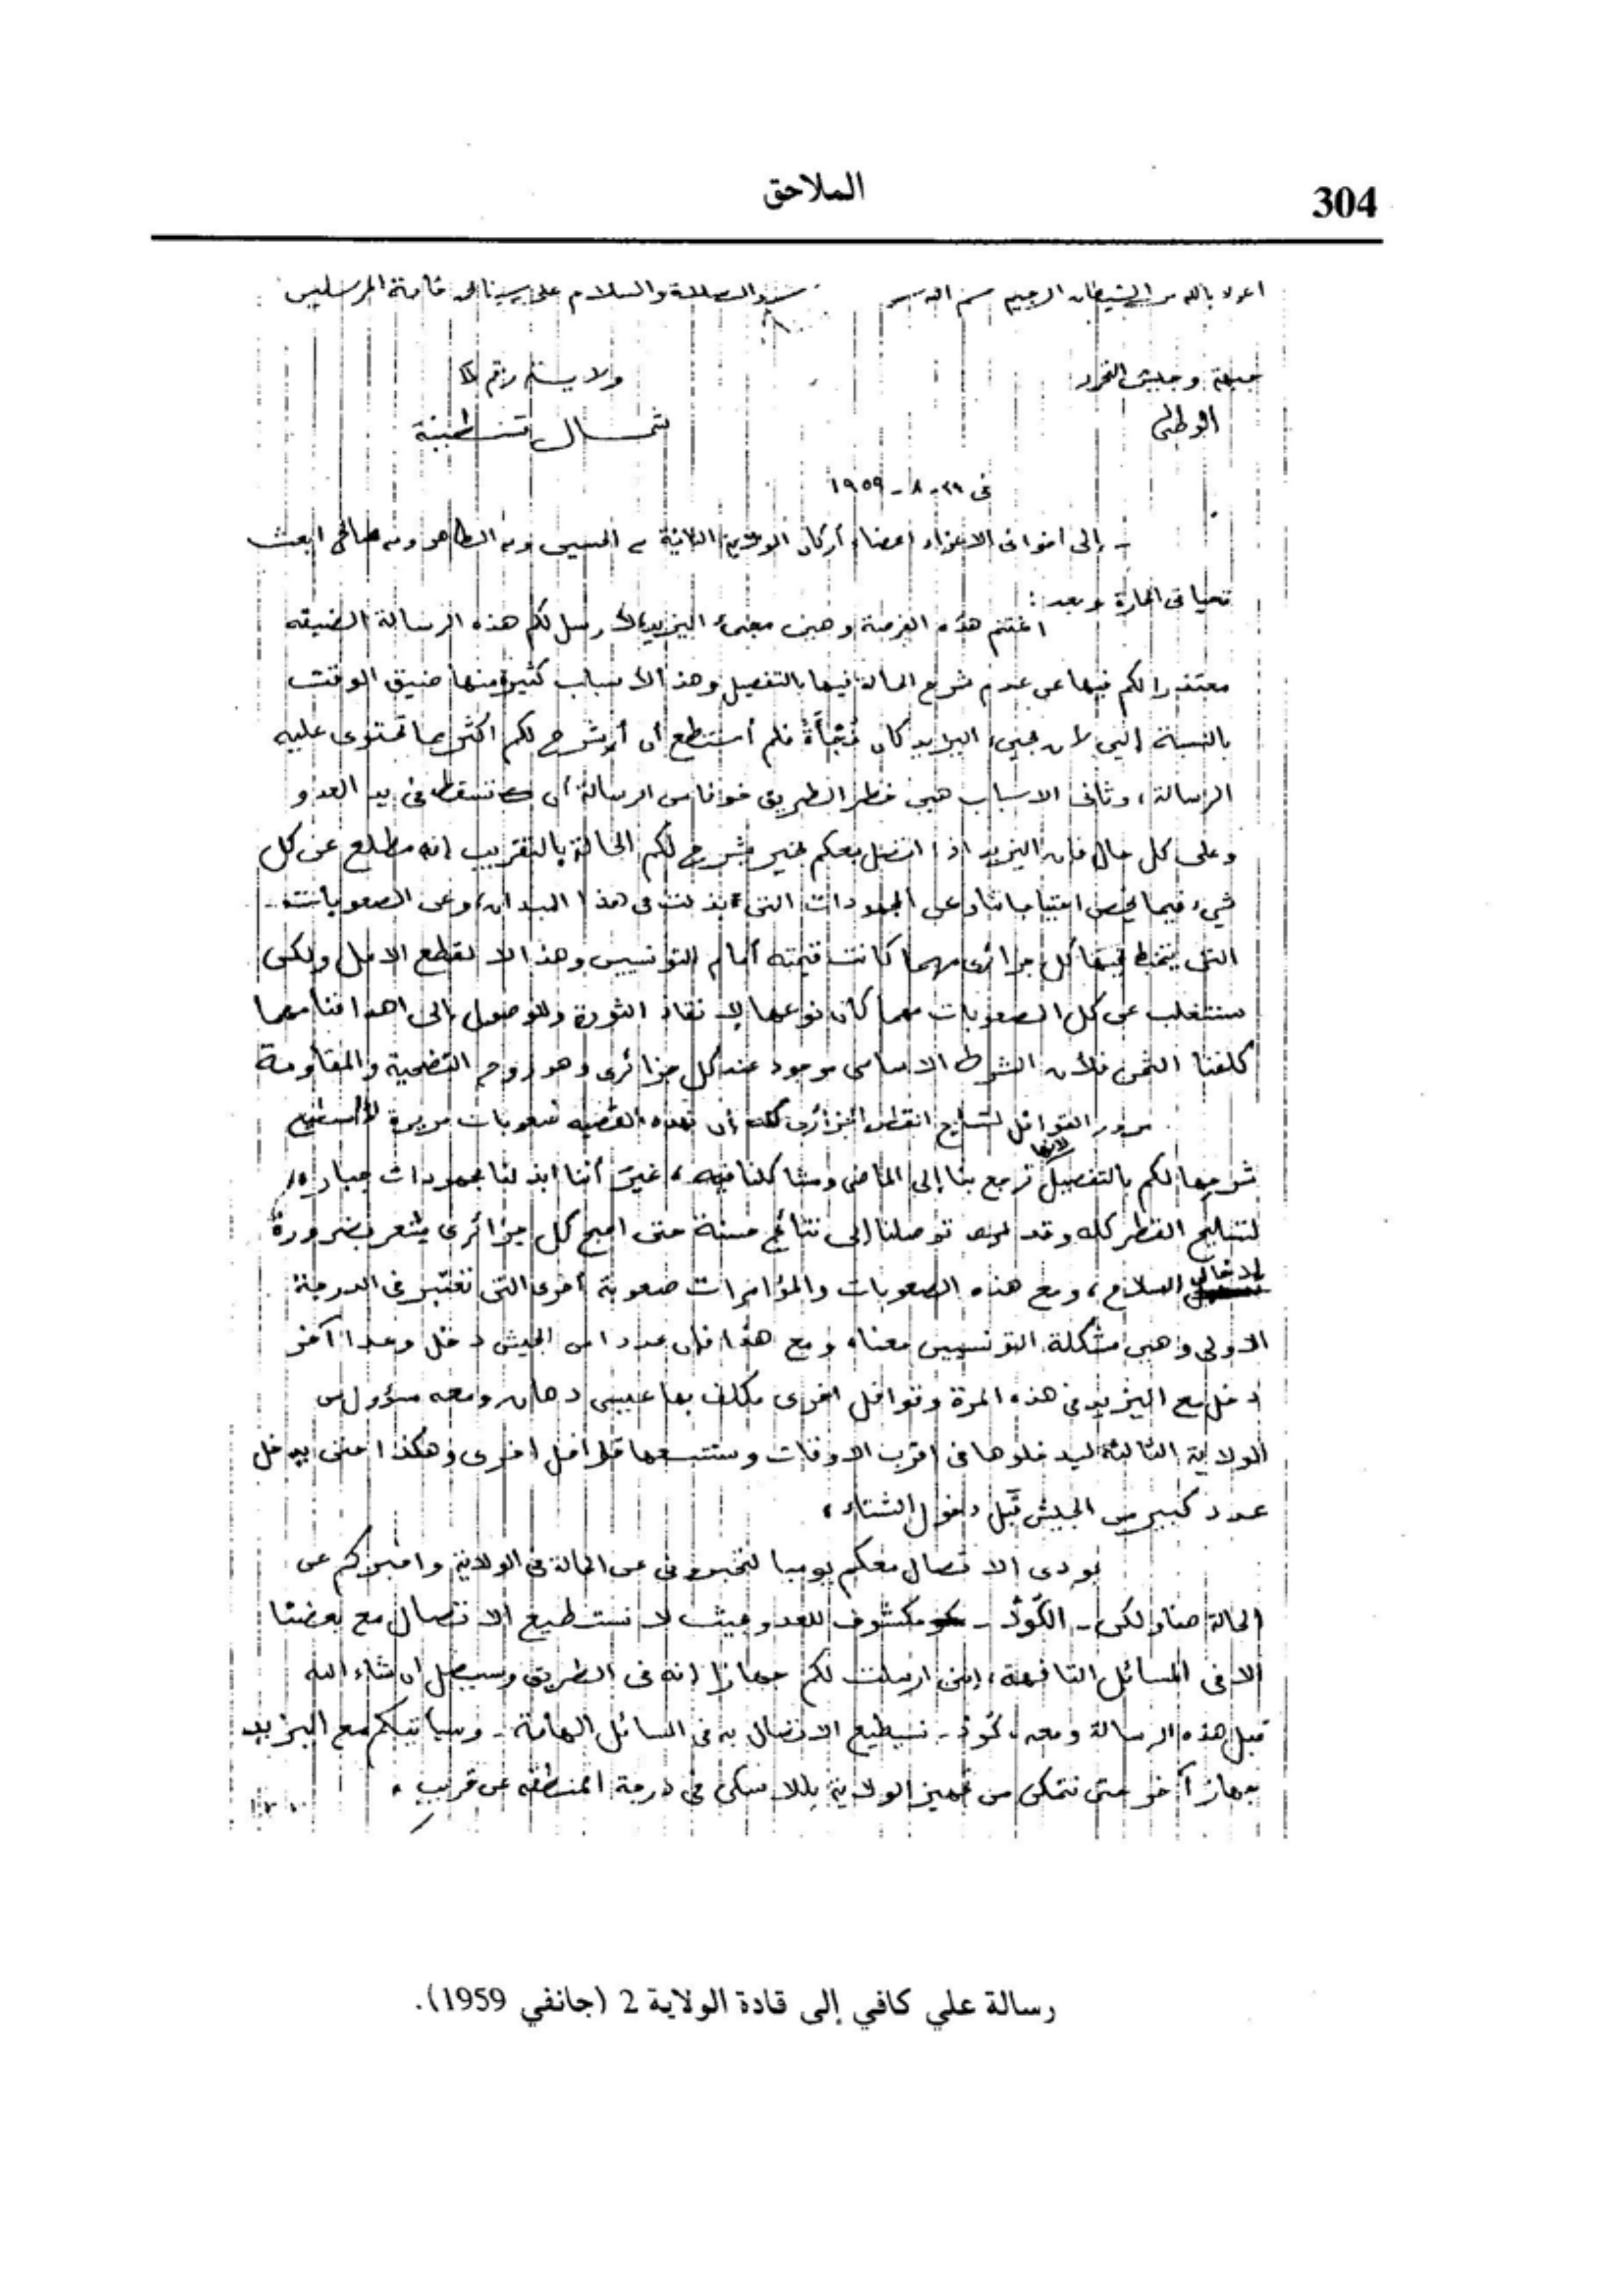 304
الملاحق
اعوذ بالله من الشيطان الرجيم بسم الله والصلاة والسلام على سيدنا خاتمة المرسلين
جبهة وجيش التحرير
ولاية رقم
الوطني
شمال قسنطينة
في ٢٩-٨-١٩٥٩
- إلى اخواني الاعزاء اعضاء أركان الولاية الثانية سي الحسين وسي الطاهر وسي صالح ابعث
تحياتي الحارة وبعد:
اغتنم هذه الفرصة وهي مجيء البريد لأرسل لكم هذه الرسالة الضيقه
معتذرا لكم فيها عن عدم شرح الحالة فيها بالتفصيل وهذا لأسباب كثيرة منها ضيق الوقت
بالنسبة إليى لأن مجيىء البريد كان فُجْأَةً فلم أستطع أن أشرح لكم اكثر مما تحتوى عليه
الرسالة، وثانى الاسباب هي خطر الطريق خوفا من الرسالة أن تسقط في يد العدو
وعلى كل حال فان اليزيد اذا اتصل معكم خير يشرح لكم الحالة بالتقريب إنه مطلع عن كل
شيء فيما يخص احتياجاتنا وعن المجهودات التى بذلت فى هذا الميدان، وعن الصعوبات
التى يتخبط فيها كل جزائرى مهما كانت قيمته أمام التونسيين وهذا لا لقطع الامل ولكن
سنتغلب عن كل الصعوبات مهما كان نوعها لانقاذ الثورة وللوصول إلى اهدافنا مهما
كلفنا الثمن فلأن الشرط الاساسى موجود عند كل جزائرى وهو روح التضحية والمقاومة
مرور القوافل لتسليح القطر الجزائرى كله إن هذه القضيه صعوبات مريرة لا أستطيع
شرحها لكم بالتفصيل لأنها ترجع بنا إلى الماضى ومشاكلنا فيه، غير أننا بذلنا مجهودات جباره
لتسليح القطر كله وقد توصلنا إلى نتائج حسنة حتى اصبح كل جزائرى يشعر بضرورة
إدخال السلاح، ومع هذه الصعوبات والمؤامرات صعوبة أخرى التى تعتبر فى الدرجة
الاولى وهي مشكلة التونسيين معنا، ومع هذا فإن عددا من الجيش دخل وعددا آخر
دخل مع اليزيد فى هذه المرة وقوافل اخرى مكلف بها عيسى دهان ومعه مسؤول من
الولاية الثالثة ليدخلوها فى اقرب الاوقات وستتبعها قوافل اخرى وهكذا حتى يدخل
عدد كبير من الجيش قبل دخول الشتاء،
بودى الاتصال معكم يوميا لتخبرونى عن الحالة فى الولاية واخبركم عن
الحالة هنا ولكن - الكُودْ - مكشوف للعدو حيث لا نستطيع الاتصال مع بعضنا
الا فى المسائل التافهة، إننى ارسلت لكم جهازا إنه فى الطريق وسيصل ان شاء الله
قبل هذه الرسالة ومعه - كُودْ - نستطيع الاتصال به فى المسائل الهامة - وسيأتيكم مع اليزيد
جهاز آخر حتى نتمكن من تجهيز الولاية باللاسلكى فى درجة المنطقه عن قريب،
رسالة علي كافي إلى قادة الولاية 2 (جانفي 1959).